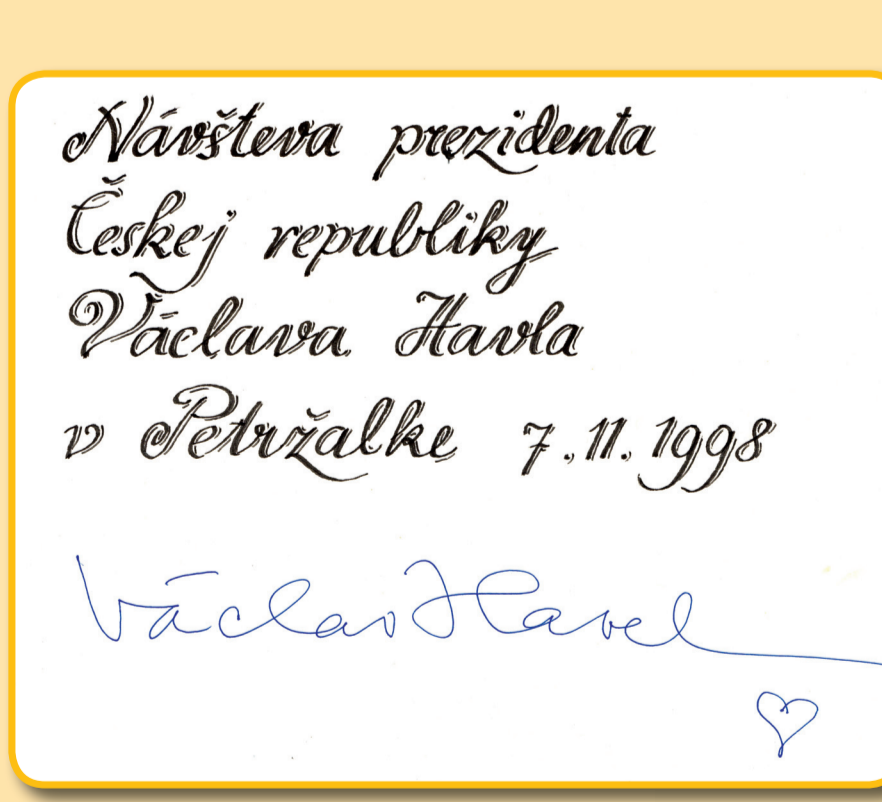 Návšteva prezidenta
Českej republiky
Václava Havla
v Petržalke 7.11.1998
Václav Havel